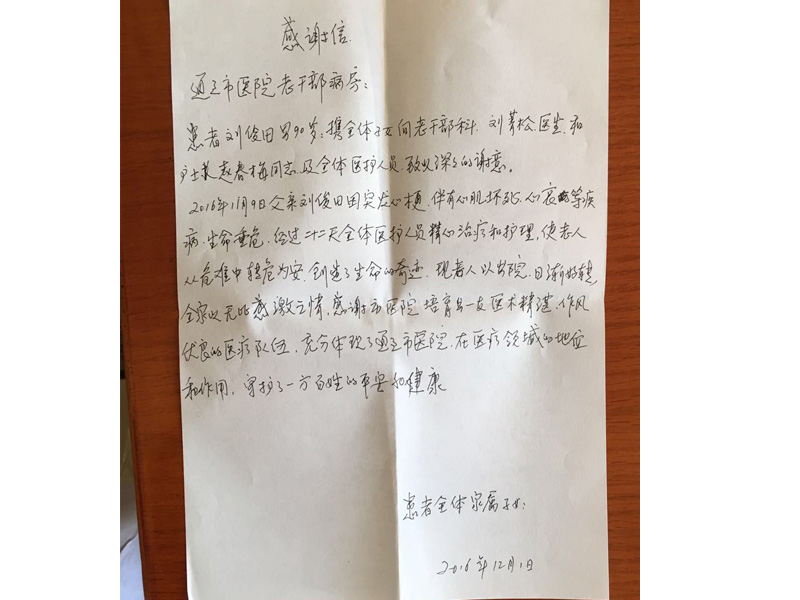 感谢信
通辽市医院老干部病房:
患者刘俊田男90岁,携全体子女向老干部科,刘菁松医生,和
护士长赵春梅同志及全体医护人员,致以深深的谢意。
2016年11月9日父亲刘俊田因突发心梗,伴有心肌坏死,心衰等疾
病,生命垂危,经过二十二天全体医护人员精心治疗和护理,使老人
从危难中转危为安,创造了生命的奇迹,现老人以出院,日渐好转,
全家以无比感激之情,感谢市医院培育出一支医术精湛,作风
优良的医疗队伍,充分体现了通辽市医院,在医疗领域的地位
和作用,守护了一方百姓的平安和健康
患者全体家属子女:
2016年12月1日